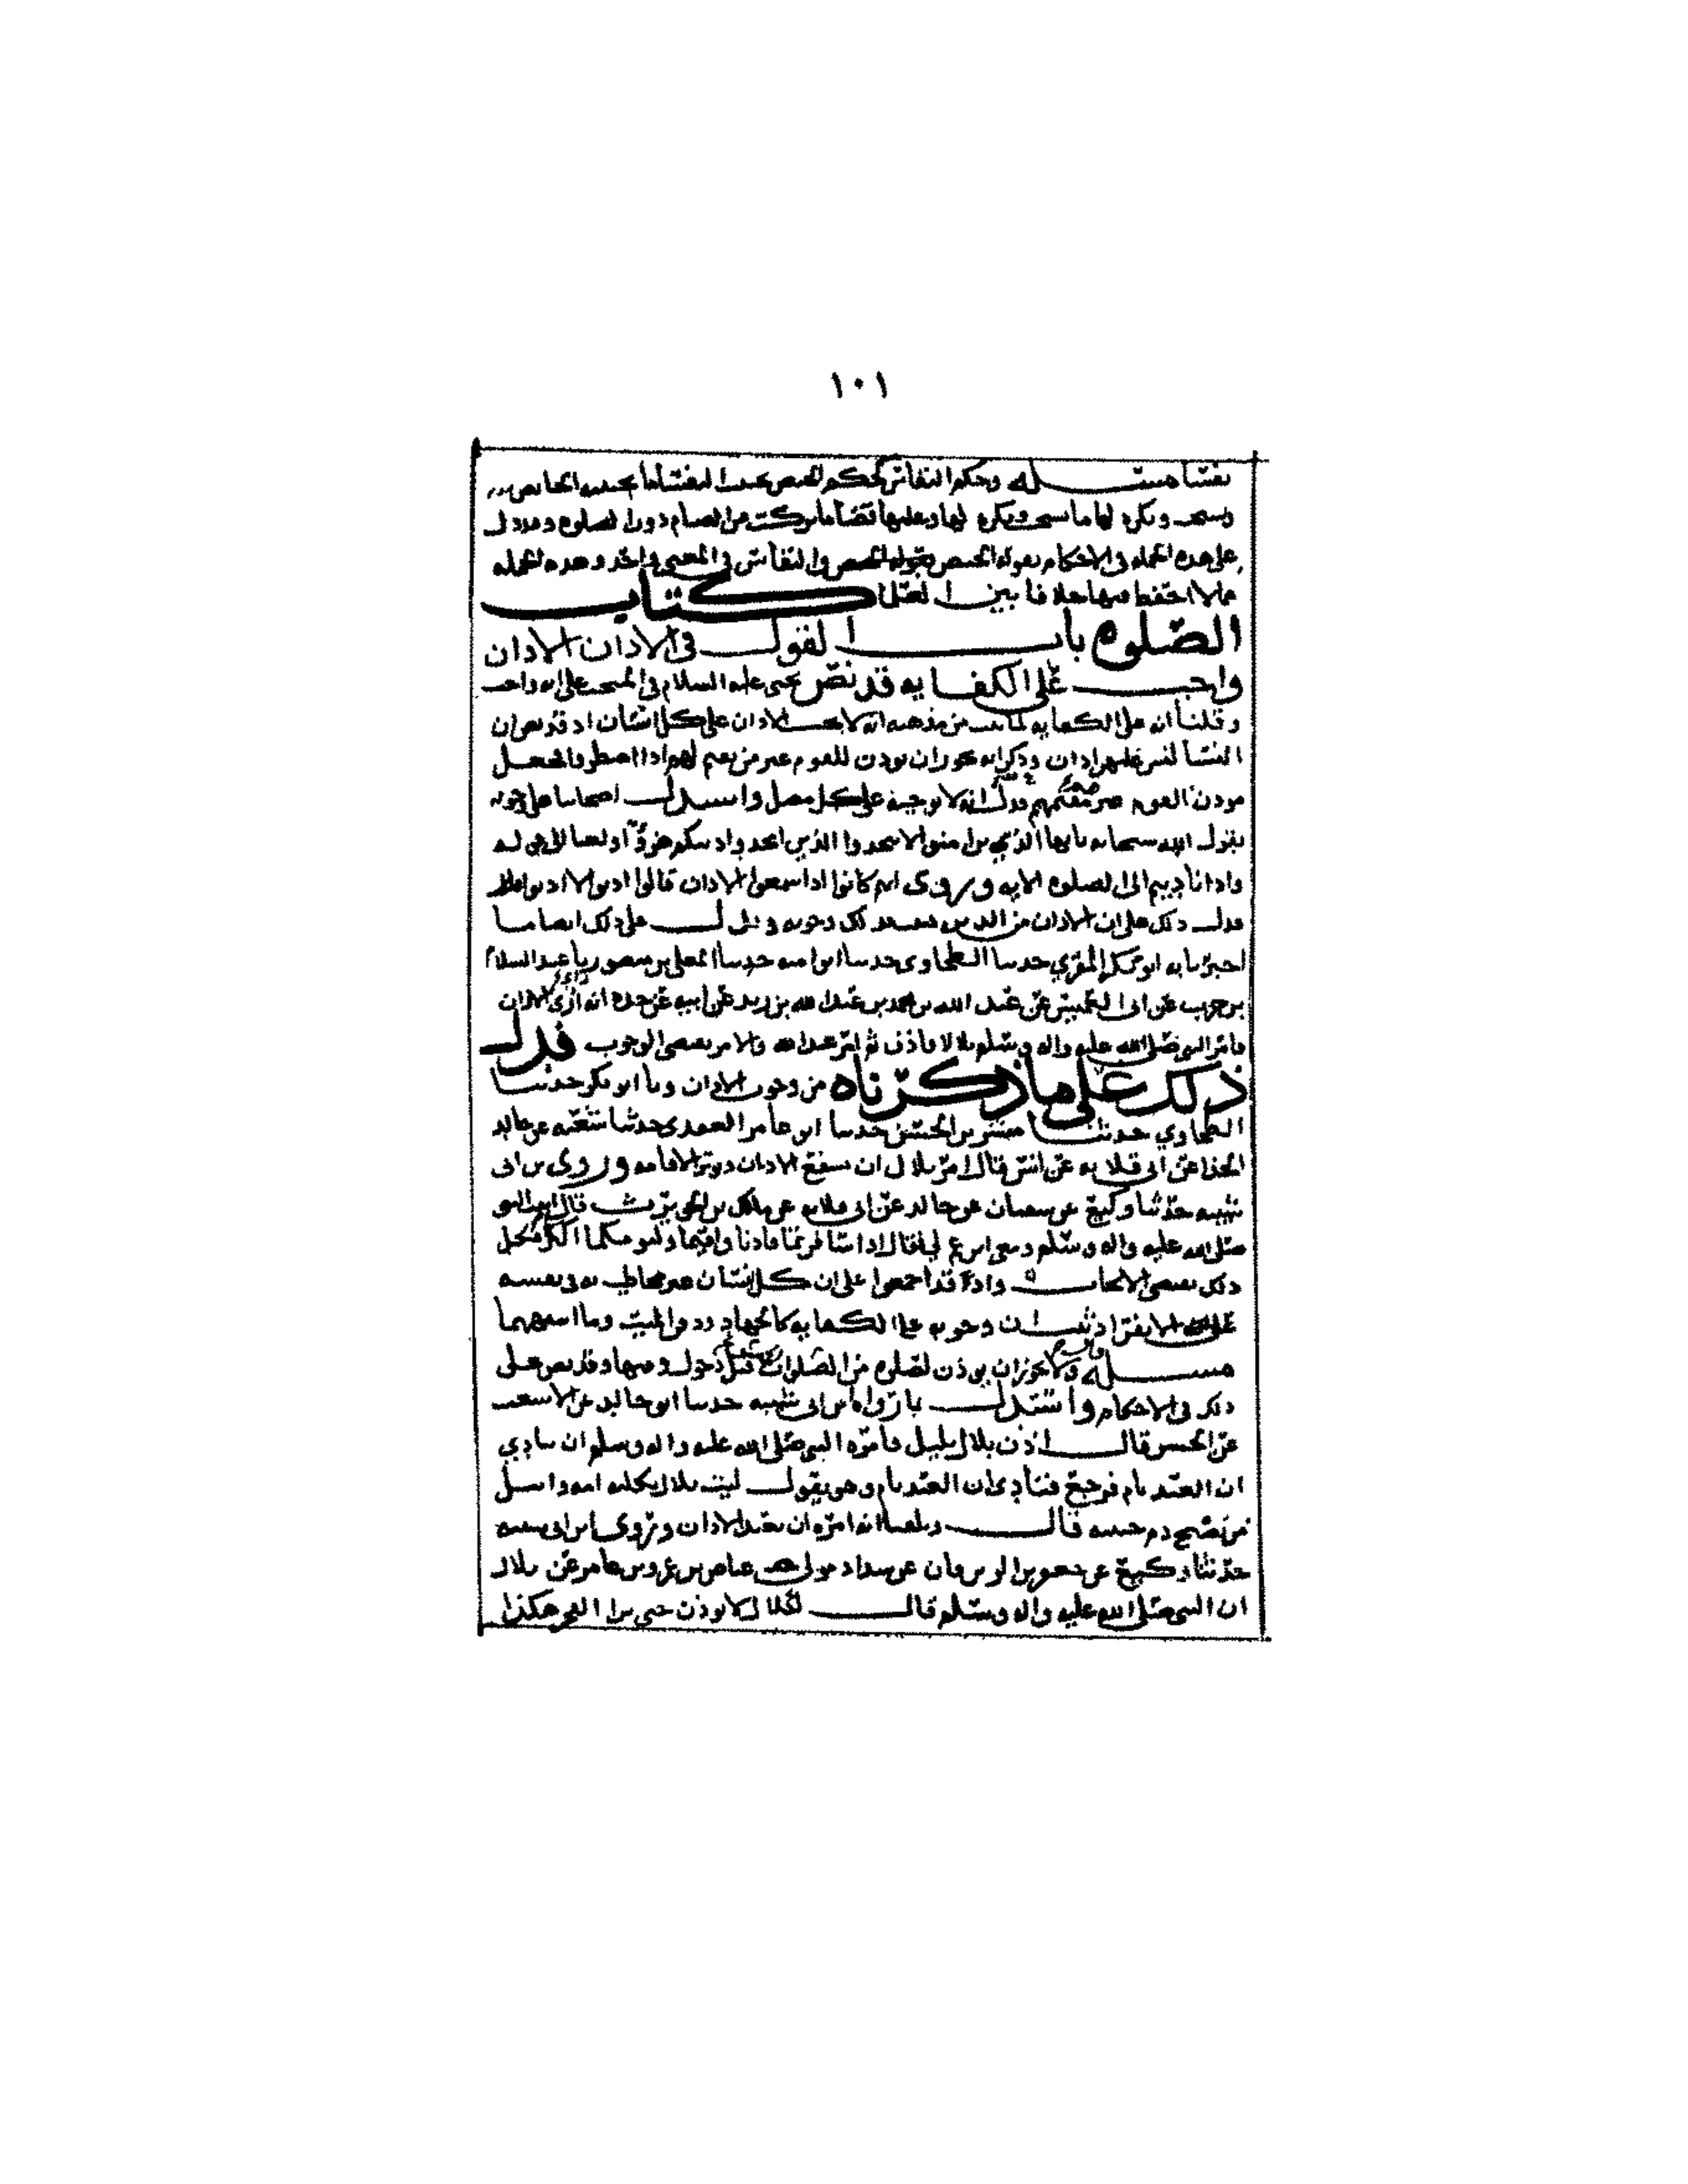 ١٠١
نفسا مسئلة وحكم النفاس كحكم الحيض تجتنب النفساء ما تجتنبه الحائض
ويستحب ويكره لها ما يستحب ويكره لها وعليها قضاء ما تركت من الصيام دون الصلوه وقد دل
على هذه الجمله في الاحكام بقوله الحيض والنفاس في المعنى واحد وهذه الجمله
مما لا احفظ فيها خلافا بين العلما كتاب
الصلوه باب القول في الاذان الاذان
واجب على الكفايه قد نص يحيى عليه السلام في المنتخب على انه واجب
وقلنا انه على الكفايه لما ثبت من مذهبه انه لا يجب الاذان على كل انسان اذ قد نص ان
النساء ليس عليهن اذان وذكر انه يجوز ان يؤذن للقوم غير من يقيم لهم اذا اضطروا لجعل
مؤذن القوم غير مقيمهم فدل انه لا يوجبه على كل مصل واستدل اصحابنا على وجوبه
بقول الله سبحانه يا ايها الذين امنوا لا تتخذوا الذين اتخذوا دينكم هزوا ولعبا الى قوله
واذا ناديتم الى الصلوه الايه وروي انهم كانوا اذا سمعوا الاذان قالوا
فدل ذلك على ان الاذان من الدين فثبت بذلك وجوبه ويدل على ذلك ايضا ما
اخبرنا به ابو بكر المقري حدثنا الطحاوي حدثنا ابو اميه حدثنا المعلى بن منصور نا عبد السلام
بن حرب عن ابي العميس عن عبد الله بن محمد بن عبد الله بن زيد عن ابيه عن جده انه اري الاذان
فامر النبي صلى الله عليه واله وسلم بلالا فاذن ثم امر عبد الله والامر يقتضي الوجوب فدل
ذلك على ما ذكرناه من وجوب الاذان ونا ابو بكر حدثنا
الطحاوي حدثنا مبشر بن الحسن حدثنا ابو عامر العقدي حدثنا شعبه عن خالد
الحذا عن ابي قلابه عن انس قال امر بلال ان يشفع الاذان ويوتر الاقامه وروى بن ابي
شيبه حدثنا وكيع عن سفيان عن خالد عن ابي قلابه عن مالك بن الحويرث قال اتيت النبي
صلى الله عليه واله وسلم ومعي ابن عم لي فقال اذا سافرتما فاذنا واقيما وليؤمكما اكبركما كل
ذلك يقتضي الايجاب واذا قد اجمعوا على ان كل انسان غير مخاطب به في نفسه
على الانفراد ثبت ان وجوبه على الكفايه كالجهاد ودفن الميت وما اشبههما
مسئله ولا يجوز ان يؤذن لصلوه من الصلوات قبل دخول وقتها وقد نص على
ذلك في الاحكام واستدل بما رواه بن ابي شيبه حدثنا ابو خالد عن الاشعث
عن الحسن قال اذن بلال بليل فامره النبي صلى الله عليه واله وسلم ان ينادي
ان العبد نام فرجع فنادى ان العبد نام وهو يقول ليت بلالا ثكلته امه وابتل
من نضح دم جبينه قال وبلغنا انه امره ان يعيد الاذان وروى ابن ابي شيبه
حدثنا وكيع عن جعفر بن برقان عن شداد مولى عياض بن عامر عن بلال
ان النبي صلى الله عليه واله وسلم قال لبلال لا تؤذن حتى ترى الفجر هكذا